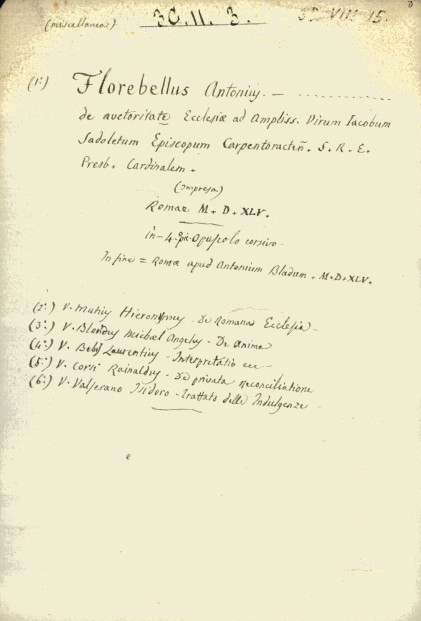 (miscellanea) 3C. 11. 3. VIII 15.
(1°) Florebellus Antonius. —
de auctoritate Ecclesiæ ad Ampliss. Virum Iacobum
Sadoletum Episcopum Carpentoracten. S. R. E.
Presb. Cardinalem.
(impresa)
Romae M. D. XLV.
in-4. Opuscolo corsivo.
In fine = Romæ apud Antonium Bladum. M.D.XLV.
(2°) V. Mutius Hieronymus - De Romana Ecclesia
(3°) V. Blondus Michael Angelus - De anima
(4°) V. Laurentius - Interpretatio
(5°) V. Corsi Rainaldus - De privata reconciliatione
(6°) V. Valserano Isidoro - trattato delle Indulgenze